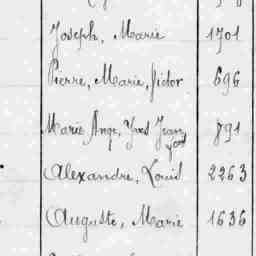 Joseph, Marie 1701
Pierre, Marie, Fidor 696
Marie Ange, Yves Jean 791
Alexandre, Louis 2263
Auguste, Marie 1636